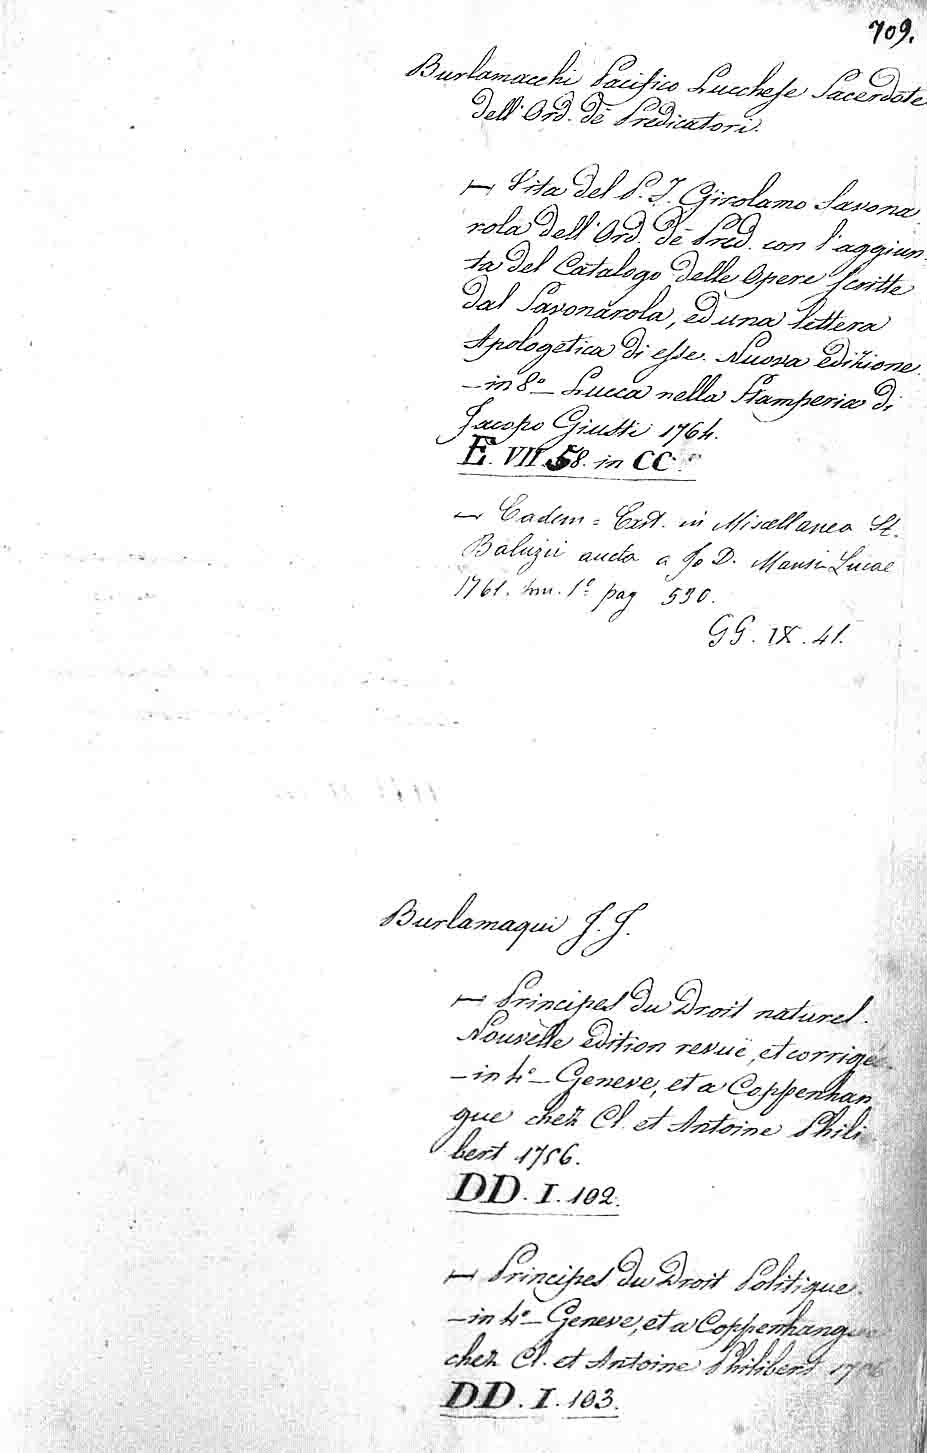 709.
Burlamacchi Pacifico Lucchese Sacerdote
dell'Ord. de Predicatori.
— Vita del P. F. Girolamo Savona
rola dell'Ord. de Pred. con l'aggiun
ta del Catalogo delle Opere scritte
dal Savonarola, ed una lettera
Apologetica di esse. Nuova edizione.
— in 8.º — Lucca nella Stamperia di
Jacopo Giusti 1764.
E. VII. 58. in CC
— Eadem = Exst. in Miscellanea St.
Baluzii aucta a Jo D. Mansi Lucae
1761. tom. 1.º pag 530.
GG. IX. 41.
Burlamaqui J. J.
— Principes du Droit naturel.
Nouvelle edition revuë, et corrigée
— in 4.º — Geneve, et a Coppenhan
gue chez Cl. et Antoine Phili
bert 1756.
DD. I. 102.
— Principes du Droit Politique.
— in 4.º — Geneve, et a Coppenhangue
chez Cl. et Antoine Philibert 1756
DD. I. 103.